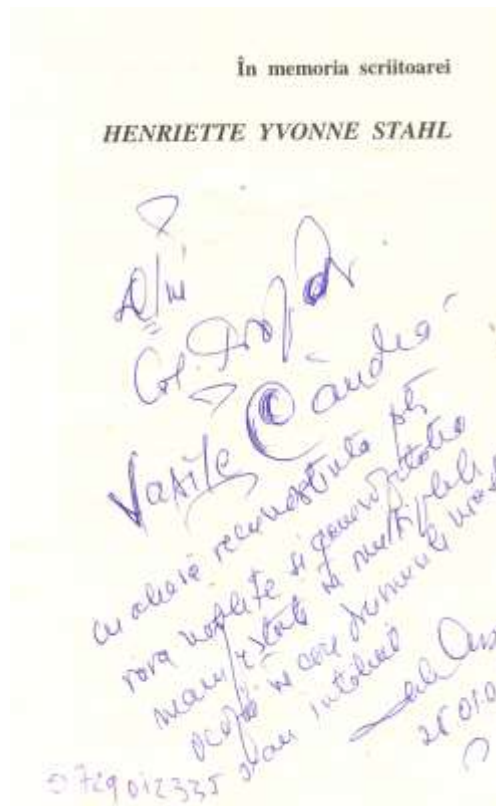 În memoria scriitoarei
HENRIETTE YVONNE STAHL
D/lui
Vasile Cândea
cu aleasă recunoștință ptr
rara noblețe și generozitatea
manifestată în multiplele
ocazii în care drumurile
s-au intâlnit
0729012335